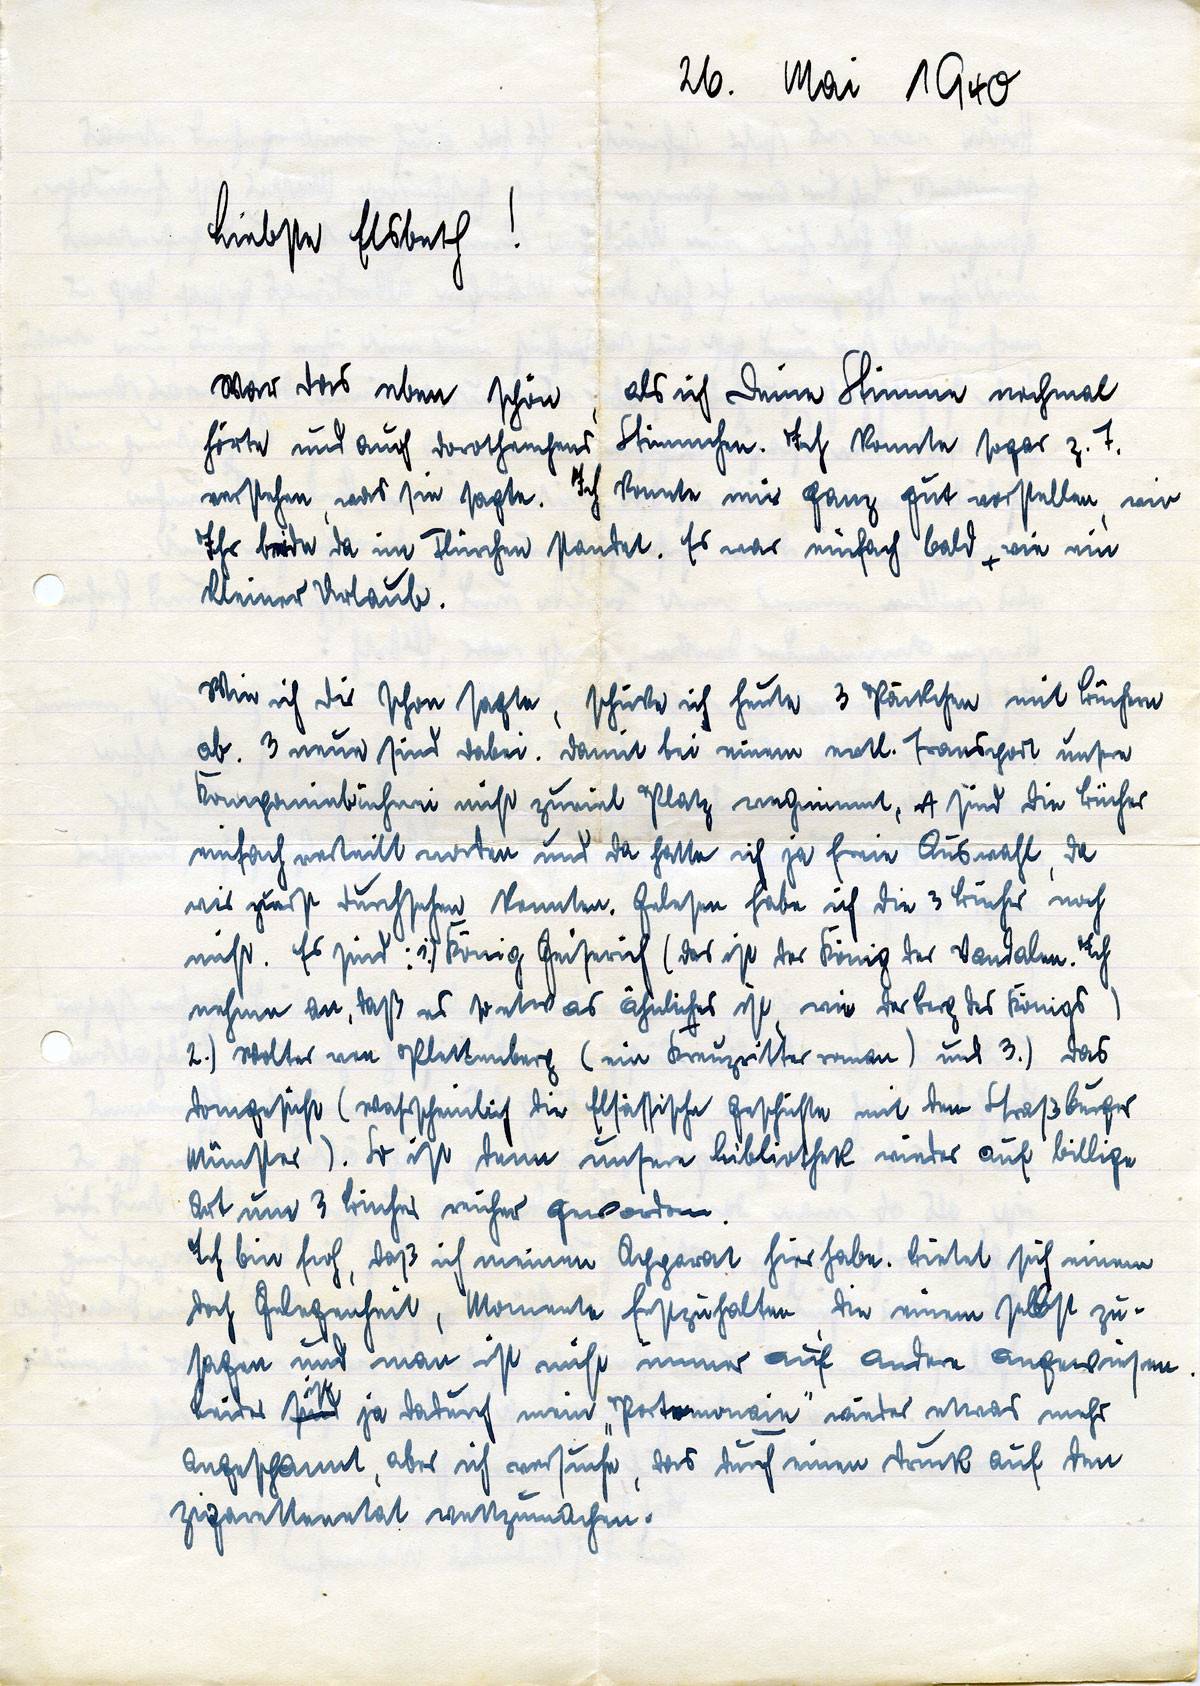 26. Mai 1940
Liebste Elsbeth!
War das eben schön, als ich Deine Stimme nochmal
hörte und auch Dorotheechens Stimmchen. Ich konnte sogar z. T.
verstehen, was sie sagte. Ich konnte mir ganz gut vorstellen, wie
Ihr beide da im Flürchen standet. Es war einfach bald wie ein
kleiner Urlaub.
Wie ich Dir schon sagte, schicke ich heute 3 Päckchen mit Büchern
ab. 3 neue sind dabei. Damit bei einem evtl. Transport unsere
Kompaniebücherei nicht zuviel Platz wegnimmt, sind die Bücher
einfach verteilt worden und da hatte ich ja freie Auswahl, da
wir zuerst durchsehen konnten. Gelesen habe ich die 3 Bücher noch
nicht. Es sind: 1.) König Geiserich (das ist der König der Vandalen. Ich
nehme an, daß es so etwas ähnliches ist, wie der Berg des Königs)
2.) Wolter von Plettenberg (ein Kreuzritterroman) und 3.) Das
Domgesicht (wahrscheinlich die Elsässische Geschichte mit dem Straßburger
Münster). So ist denn unsere Bibliothek wieder auf billige
Art um 3 Bücher reicher geworden.
Ich bin froh, daß ich meinen Apparat hier habe. Bietet sich einem
doch Gelegenheit, Momente festzuhalten, die einem selbst zu-
sagen und man ist nicht immer auf andere angewiesen.
Leider ist ja dadurch mein "Portemonaie" wieder etwas mehr
angespannt, aber ich versuche, das durch einen Druck auf den
Zigarettenetat wettzumachen.